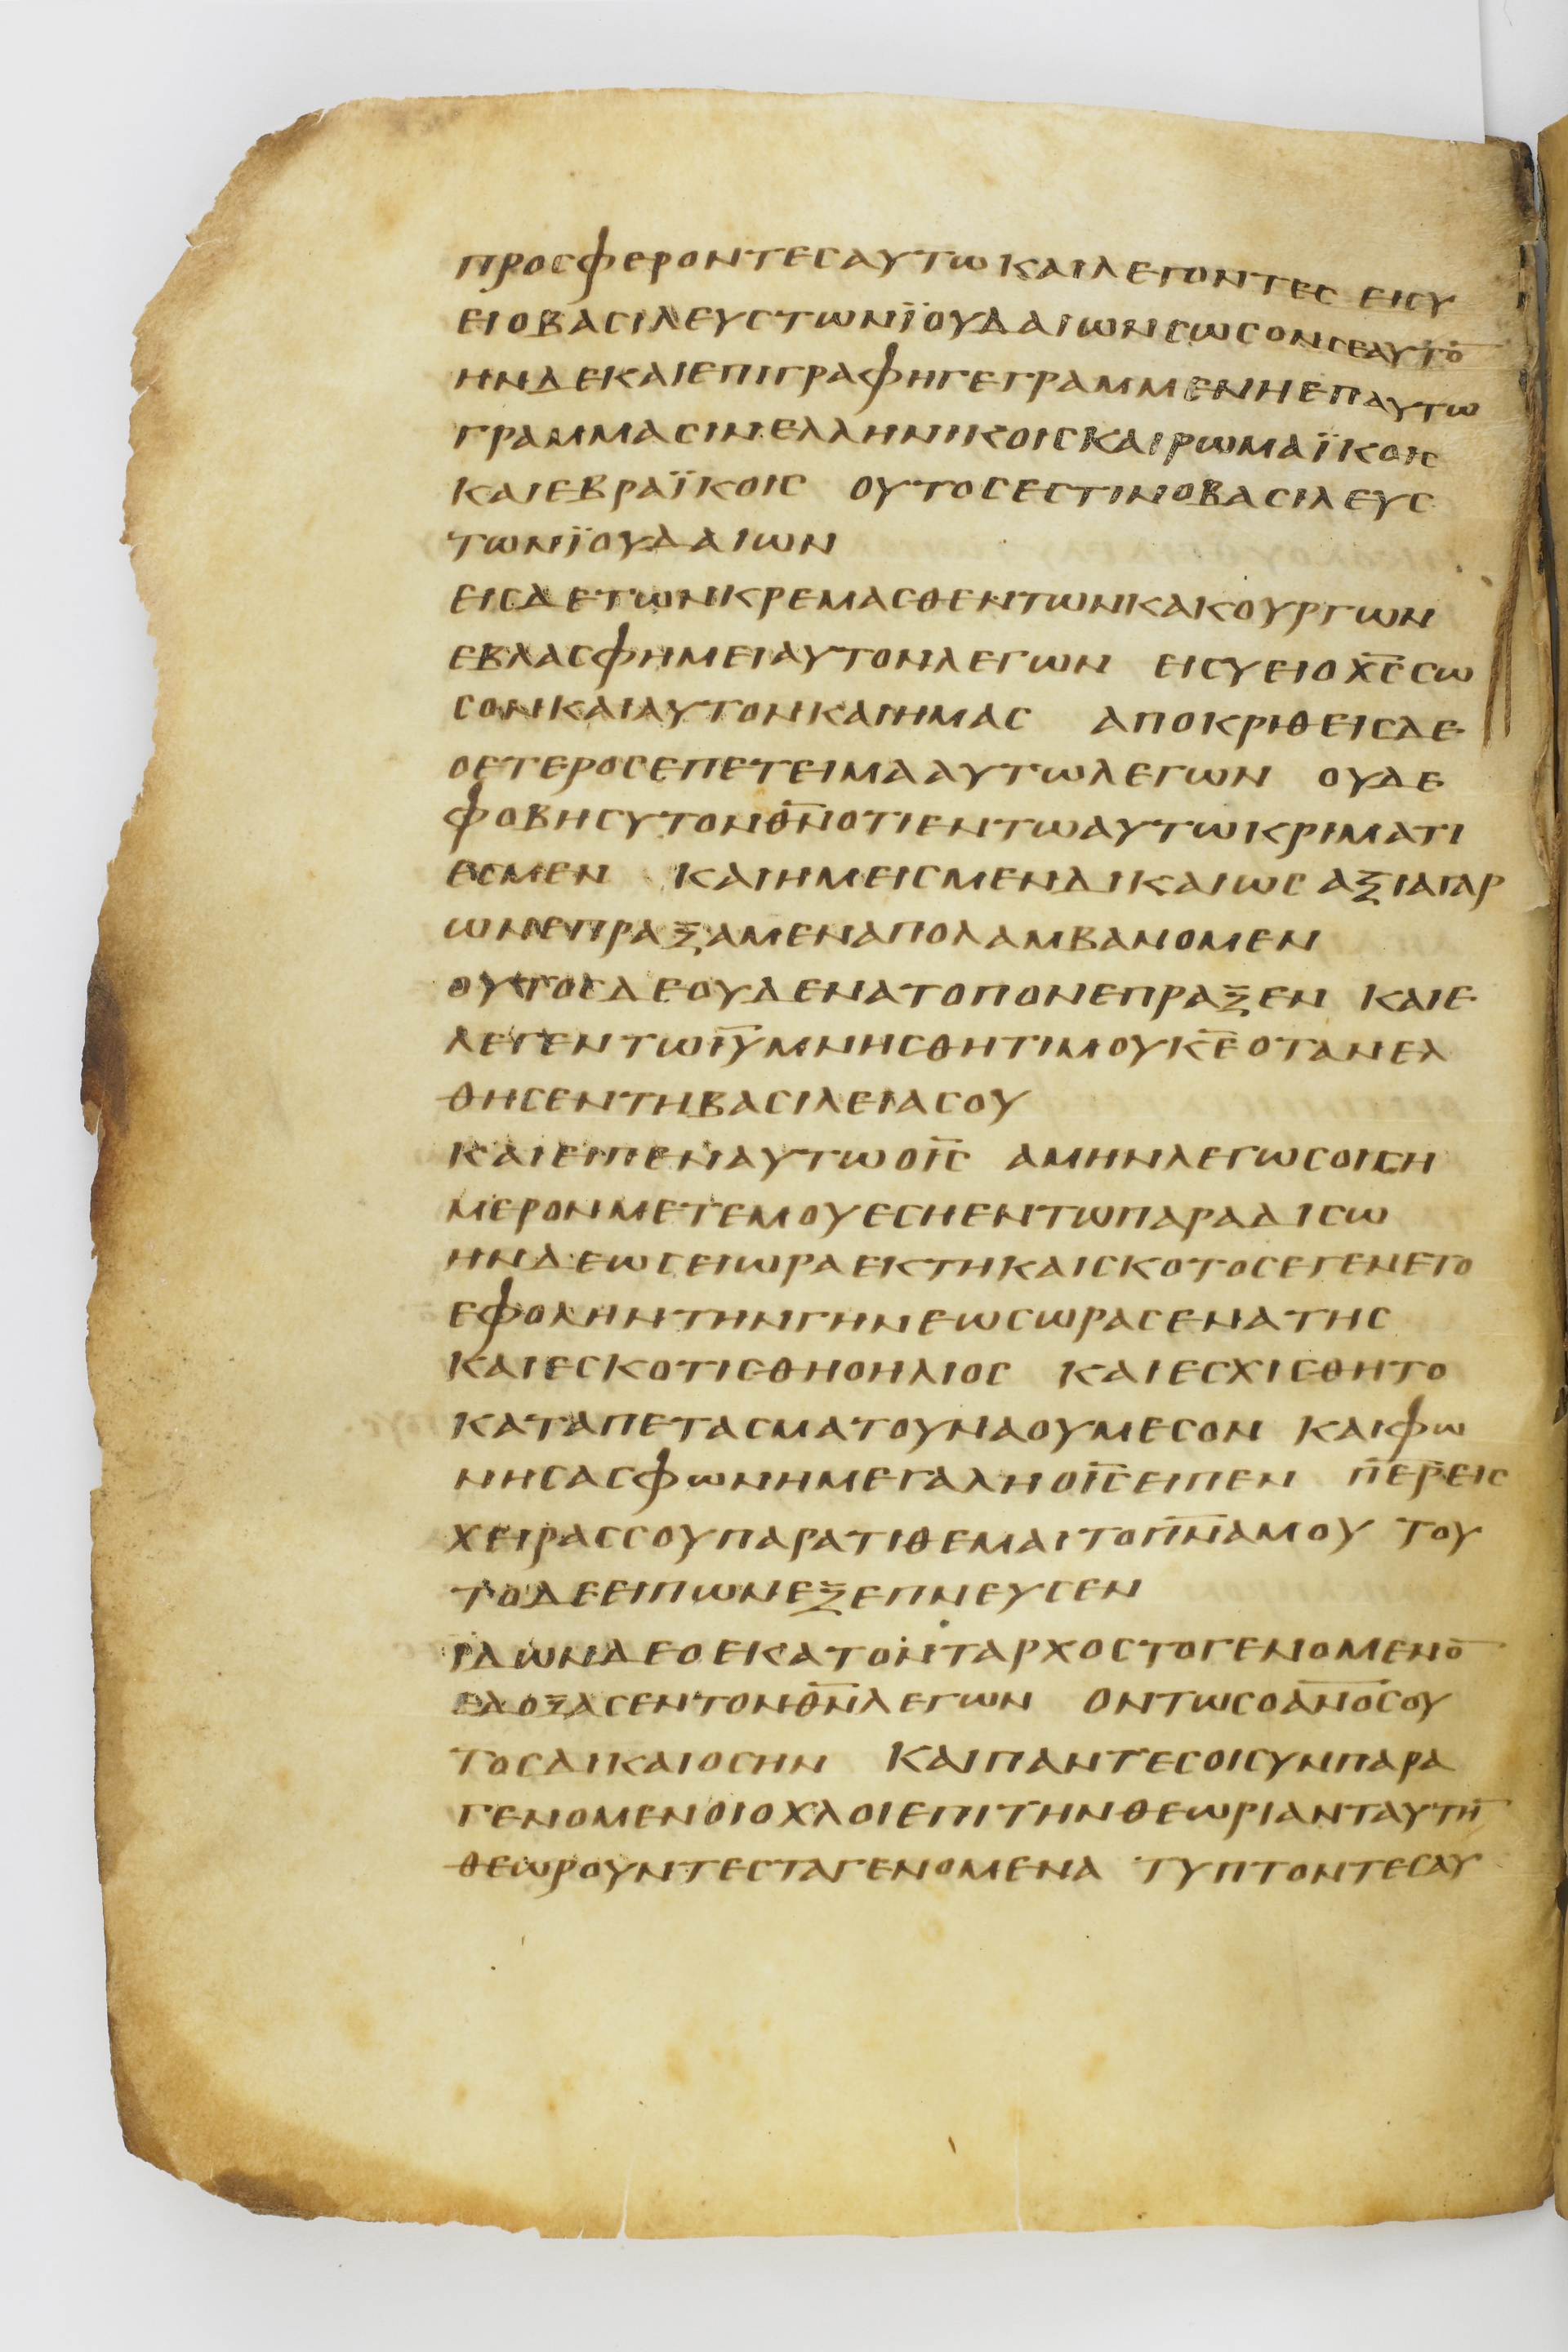 προσφεροντεσαυτωκαιλεγοντες εισυ
ειοβασιλευστωνϊουδαιωνσωσονσεαυτο̅
ηνδεκαιεπιγραφηγεγραμμενηεπαυτω
γραμμασινελληνικοισκαιρωμαϊκοις
καιεβραϊκοις ουτοσεστινοβασιλευς
τωνϊουδαιων
εισδετωνκρεμασθεντωνκακουργων
εβλασφημειαυτονλεγων εισυειοχ̅ς̅σω
σονκαιαυτονκαιημας αποκριθεισδε
οετεροσεπετειμααυτωλεγων ουδε
φοβησυτονθ̅ν̅οτιεντωαυτωκριματι
εσμεν καιημεισμενδικαιως αξιαγαρ
ωνεπραξαμεναπολαμβανομεν
ουτοσδεουδενατοπονεπραξεν καιε
λεγεντωι̅υ̅μνησθητιμουκ̅ε̅οτανελ
θησεντηβασιλειασου
καιειπεναυτωοι̅ς̅ αμηνλεγωσοιση
μερονμετεμουεσηεντωπαραδισω
ηνδεωσειωραεκτηκαισκοτοσεγενετο
εφοληντηνγηνεωσωρασενατης
καιεσκοτισθηοηλιος καιεσχισθητο
καταπετασματουναουμεσον καιφω
νησασφωνημεγαληοι̅ς̅ειπεν π̅ε̅ρ̅εις
χειρασσουπαρατιθεμαιτοπ̅ν̅αμου του
τοδεειπωνεξεπνευσεν
ϊδωνδεοεκατονταρχοστογενομενο̅
εδοξασεντονθ̅ν̅λεγων οντωσοα̅ν̅ο̅σου
τοσδικαιοσην καιπαντεσοισυνπαρα
γενομενοιοχλοιεπιτηνθεωριανταυτη̅
θεωρουντεσταγενομενα τυπτοντεσαυ